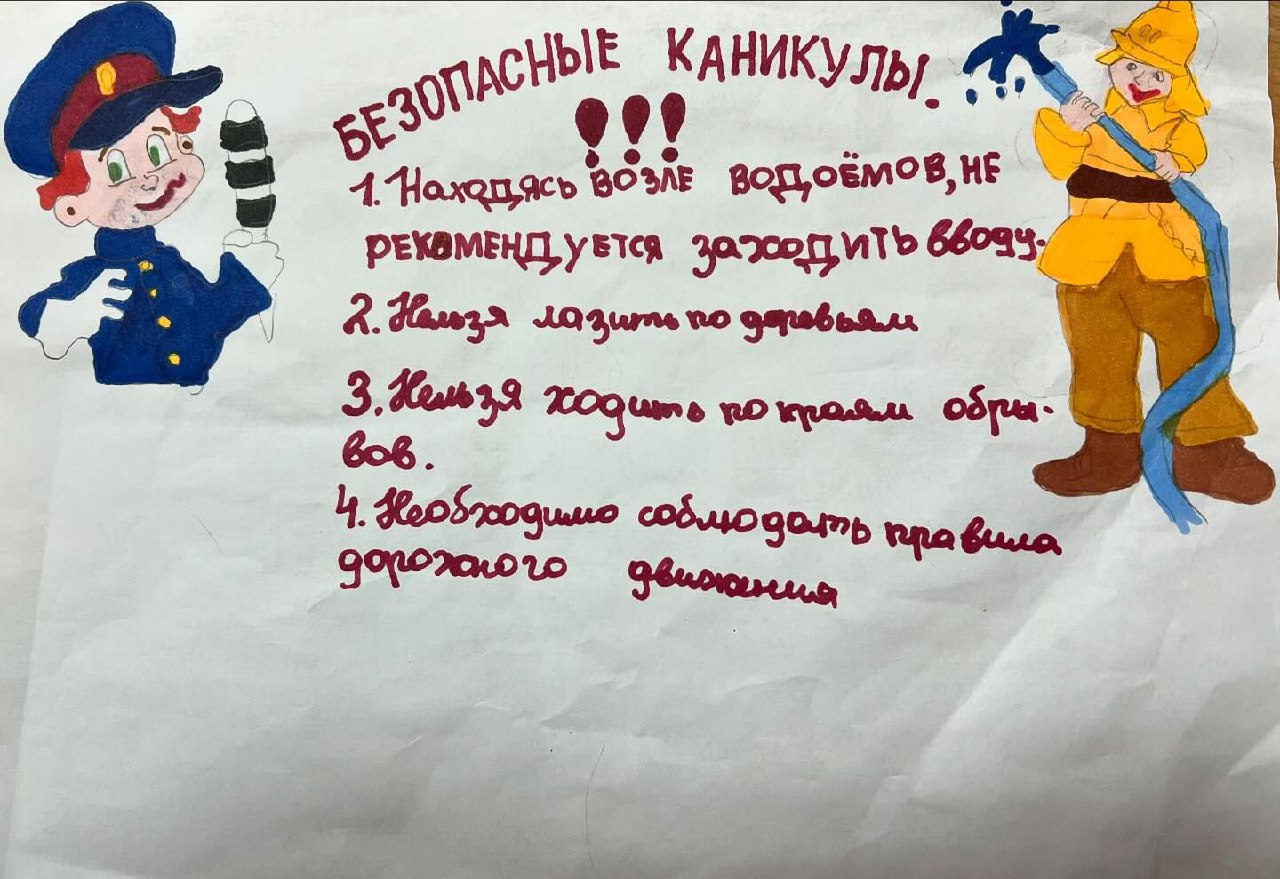 БЕЗОПАСНЫЕ КАНИКУЛЫ.
!!!
1. Находясь ВОЗЛЕ ВОДОЁМОВ, НЕ
РЕКОМЕНДУЕТСЯ ЗАХОДИТЬ ВВОДУ.
2. Нельзя лазить по деревьям
3. Нельзя ходить по краям обры-
вов.
4. Необходимо соблюдать правила
дорожного движения